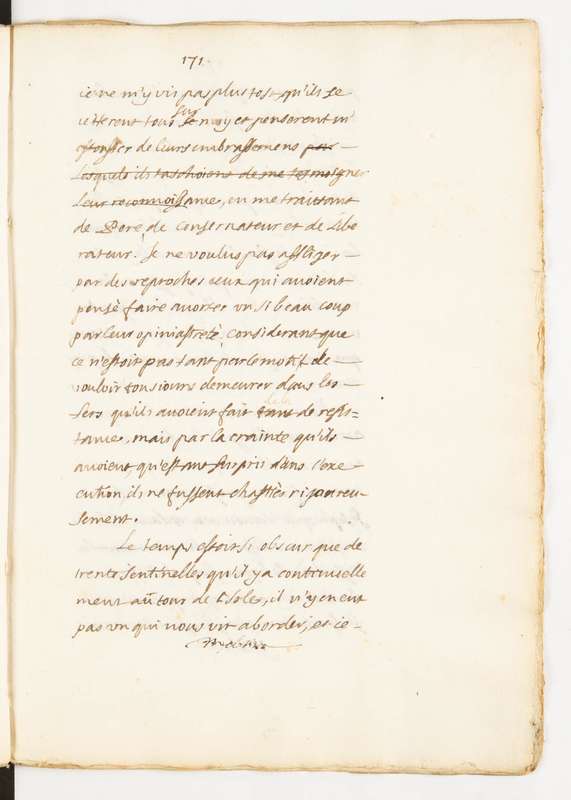 171.
ie ne m'y vis pas plus tost qu'ils se
ietterent tous sur moy et penserent m'
estouffer de leurs embrassemens par
lesquels ils taschoient de me tesmoigner
leur reconnoissance, en me traittant
de Pere, de Conservateur et de Libe
rateur. Je ne voulus pas affliger
par des reproches ceux qui avoient
pensé faire avorter un si beau coup
par leur opiniastreté, Considerant que
ce n'estoit pas tant par le motif de
vouloir tousiours demeurer dans les
fers qu'ils avoient fait de la resis=
tance, mais par la crainte qu'ils
avoient, qu'estant surpris dans l'exe
cution, ils ne fussent chastiés rigoureu
sement.
Le temps estoit si obscur que de
trente sentinelles qu'il y a continuelle
ment autour de l'Isole, il n'y en eut
pas un qui nous vit aborder, et ce